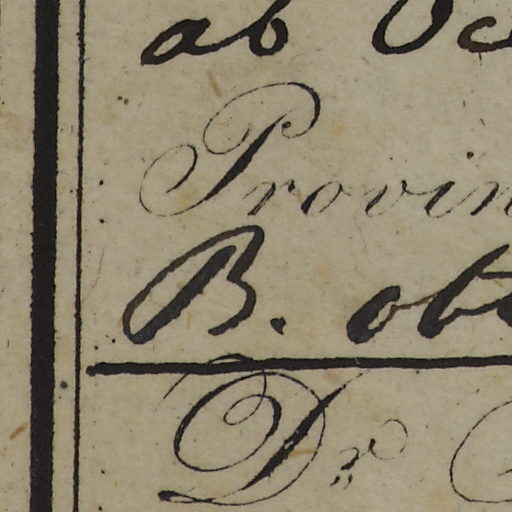 ab
Provin
B. ob
Dr